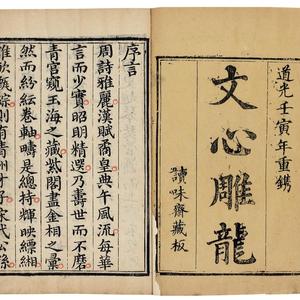 道光壬寅年重鐫
文心雕龍
讀味齋藏板
序言
周詩雅麗漢賦矞皇典午風流每華
言而少實昭明精選乃壽世而不磨
青宮窺玉海之藏紫閣盡金相之彙
然而紛紜卷軸疇是總持輝映縹緗
甄綜則有青州才子宋代公孫